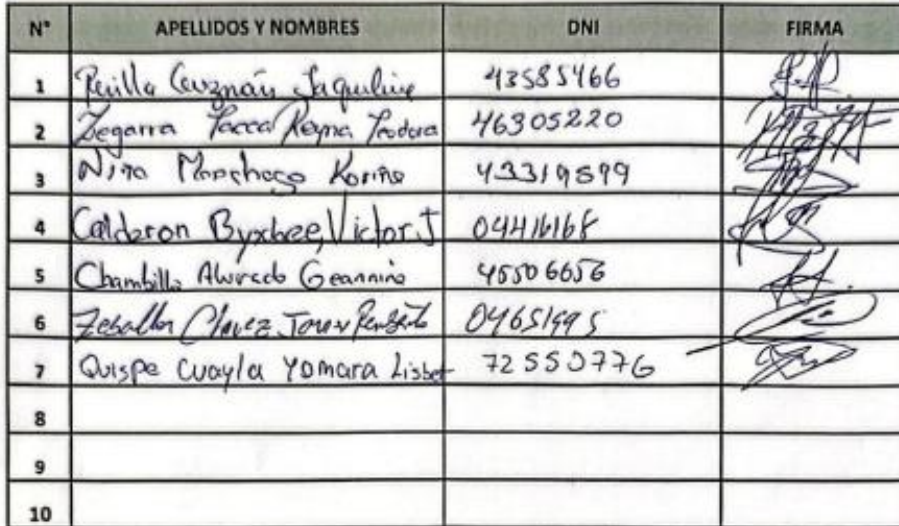 N° APELLIDOS Y NOMBRES DNI FIRMA
1 Guzmán Jaqueline 43585466
2 Zegarra Pacca Reyna Teodora 46305220
3 Nina Korina 43319599
4 Calderon Byxbee, Victor J 04416168
5 Chambilla Geannina 45506656
6 Zeballos Chavez 04651995
7 Quispe Cuayla Yomara Lisbet 72550776
8
9
10